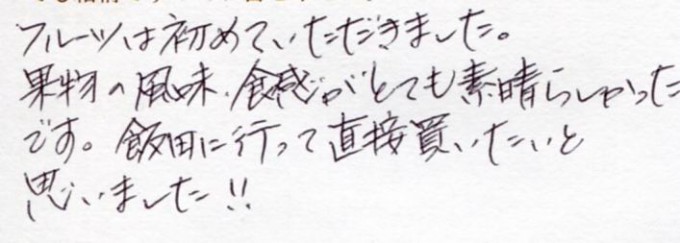 フルーツは初めていただきました。
果物の風味、食感がとても素晴らしかった
です。飯田に行って直接買いたいと
思いました!!